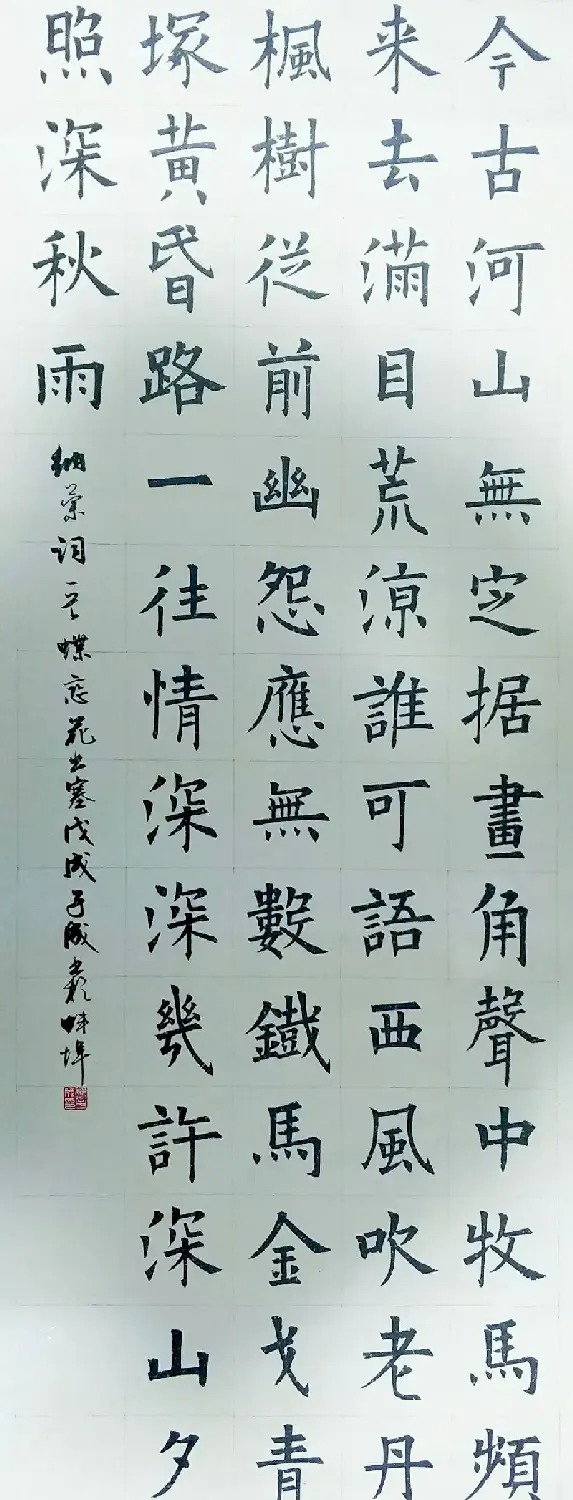 今古河山無定据畫角聲中牧馬頻
来去滿目荒涼誰可語西風吹老丹
楓樹從前幽怨應無數鐵馬金戈青
塚黃昏路一往情深深幾許深山夕
照深秋雨
納蘭詞一首蝶恋花出塞戊戌子晟書於蚌埠